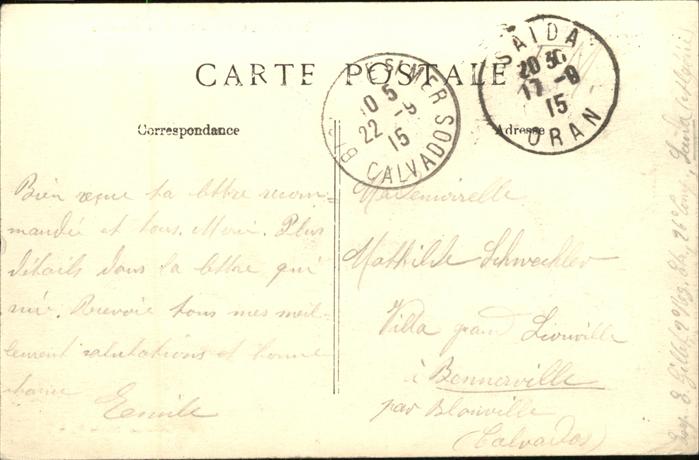 CARTE POSTALE
SAIDA
20 30
17 -8
15
ORAN
S/MER
10 5
22 -8
15
CALVADOS
Correspondance
Adresse
Bien reçue ta lettre recom-
mandée et tous. Merci. Plus
détails dans la lettre qui
suit. Recevoir tous mes meil-
leures salutations et bonne
chance
Emile
Mademoiselle
Mathilde Schwechler
Villa grand Lionville
à Bennerville
par Blonville
(Calvados)